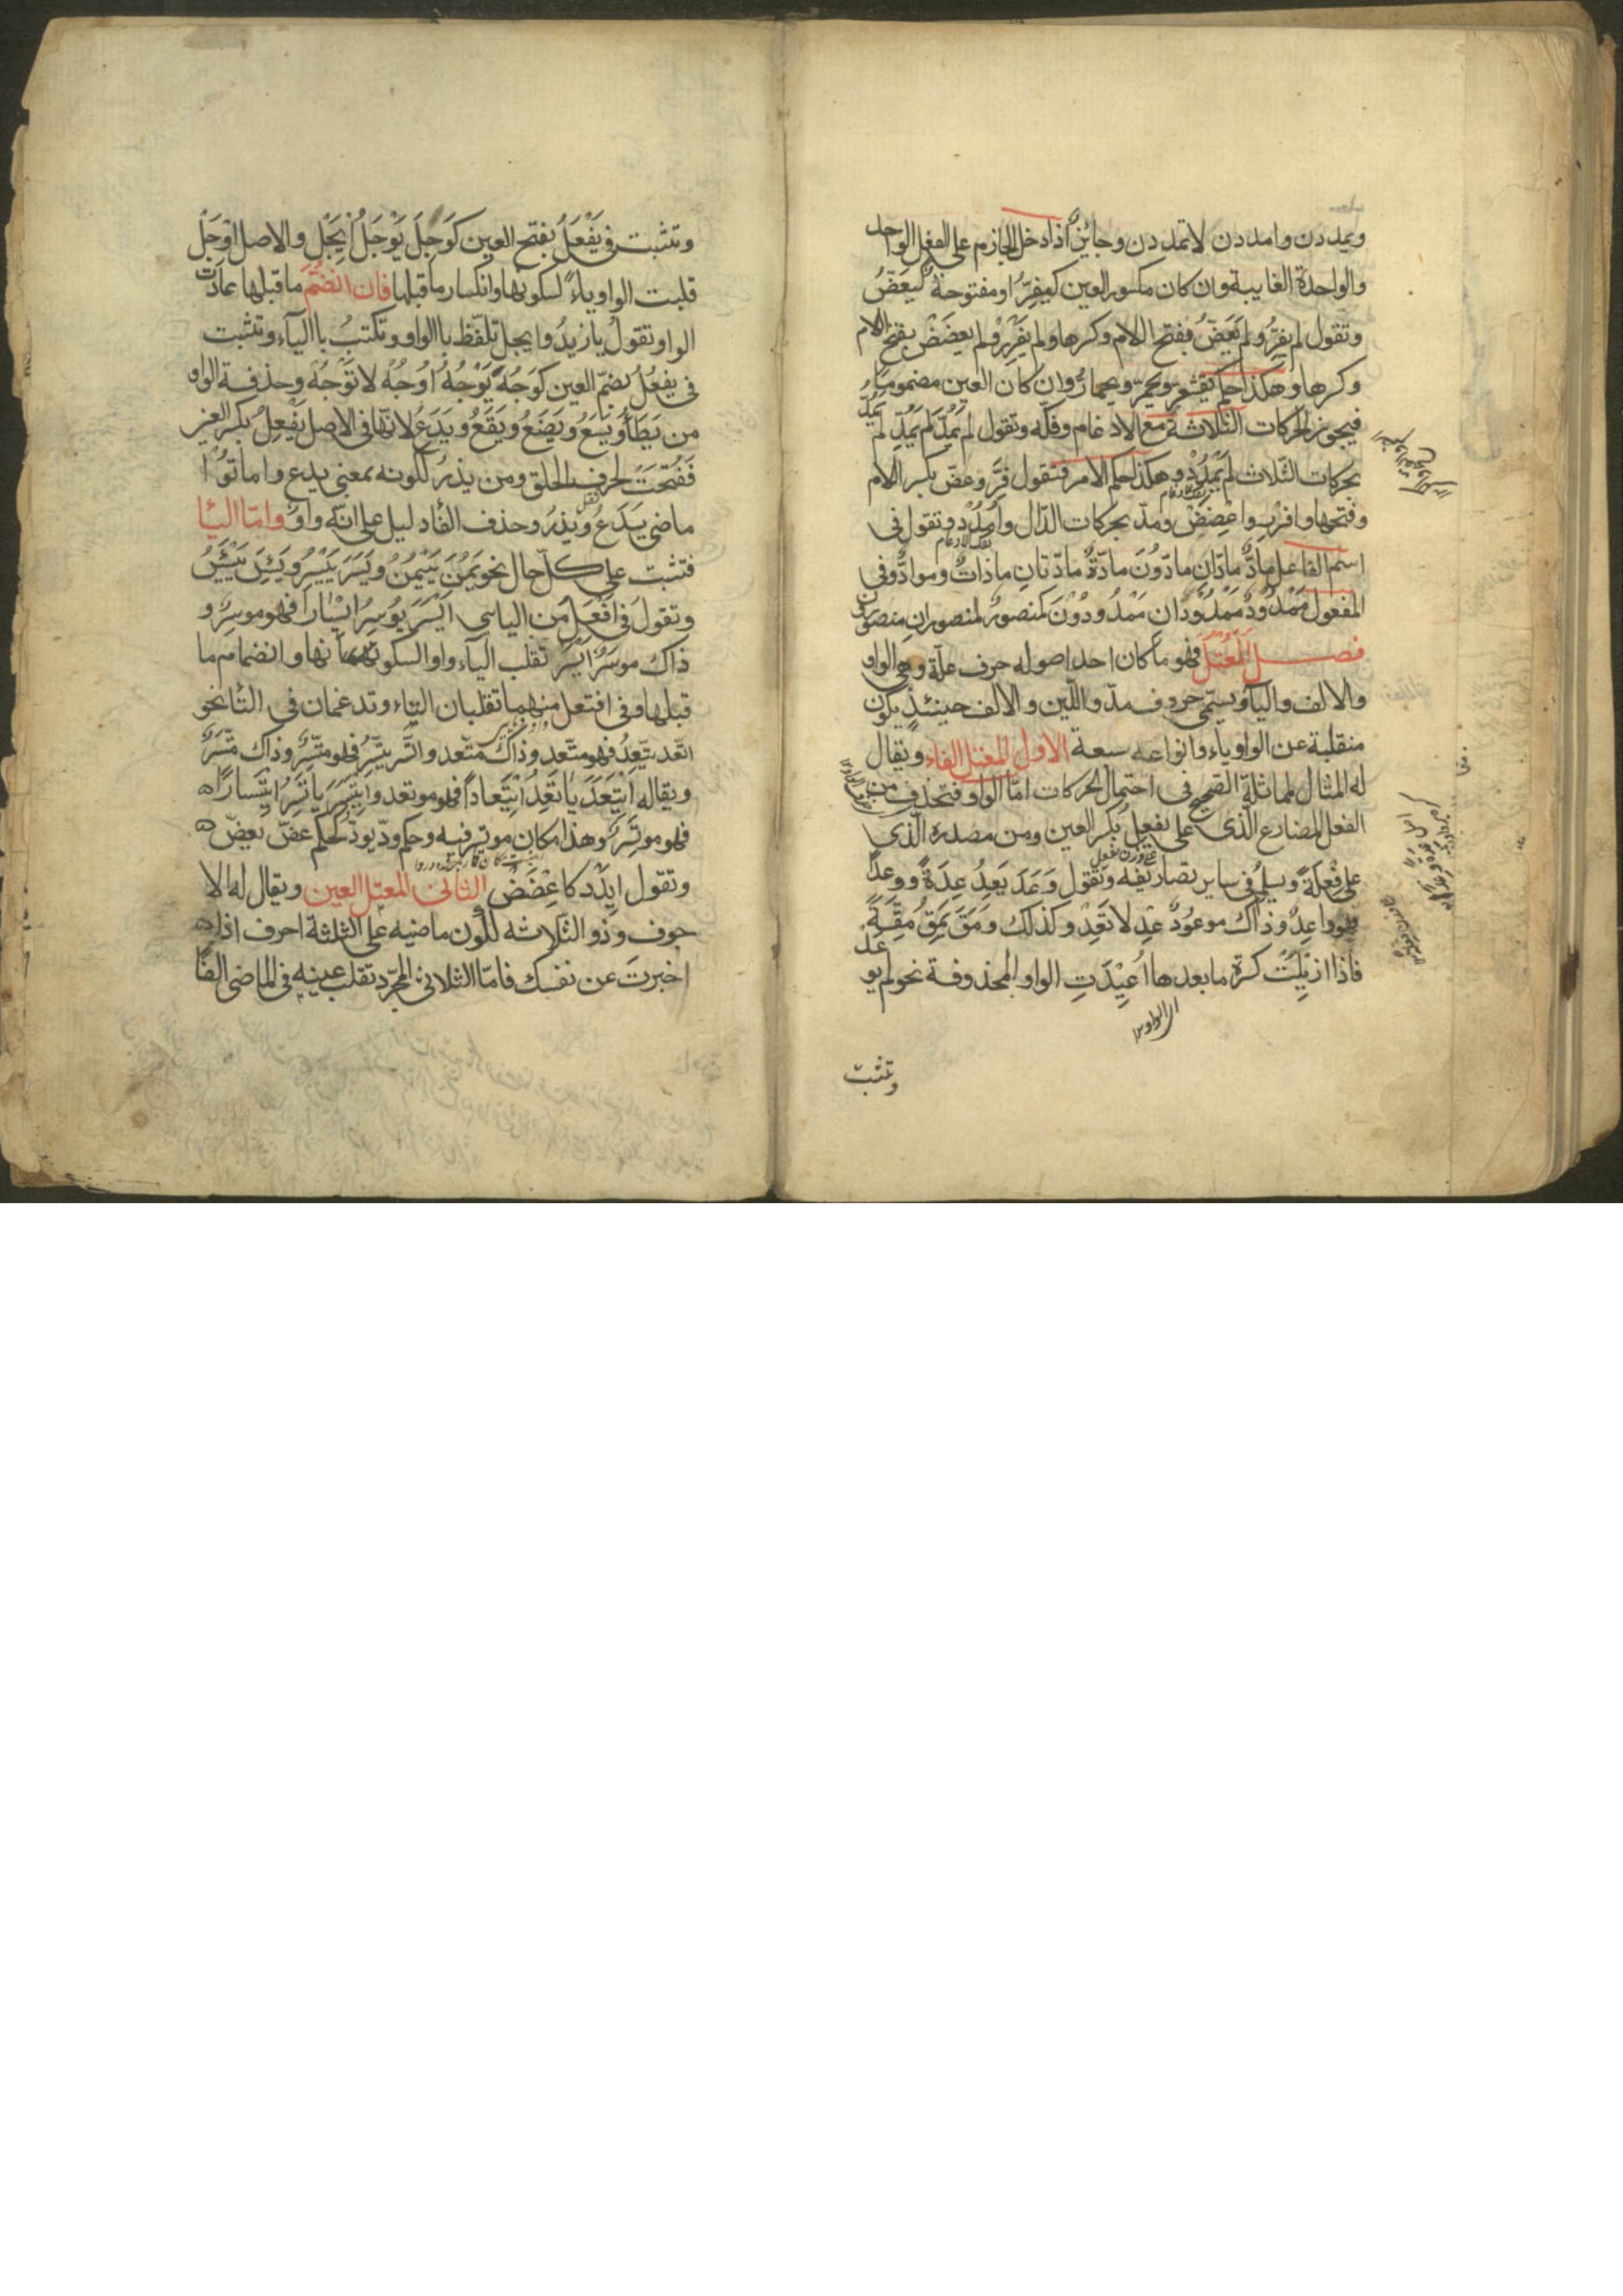 ويمددن وامددن لاتمددن وجائز اذا دخل الجازم على الفعل الواحد
والواحدة الغايبة وان كان مكسور العين كيفِرُّ او مفتوحة كيَعَضُّ
وتقول لم يفِرَّ ولم يَعَضَّ بفتح اللام وكسرها ولم يَفْرِرْ ولم يعضَضْ بفتح اللام
وكسرها وهكذا حكم يقشعر ويحمر ويحمارّ وان كان العين مضموما
فيجوز الحركات الثلاثة مع الادغام وفكّه وتقول لم يَمُدَّ لم يَمُدِّ لم يَمُدُّ
بحركات الثلاث لم يَمْدُدْ وهكذا حكم الامر فتقول فِرَّ وعضّ بكسر اللام
وفتحها وافرِر واعْضَضْ ومدّ بحركات الدّال وامْدُدْ وتقول فى
اسم الفاعل مادٌّ مادّانِ مادّونَ مادّةٌ مادّتانِ مادّاتٌ وموادُّ وفى
المفعول مَمْدُودٌ مَمْدُودَانِ مَمْدُودُوْنَ كمنصورٌ منصورانِ منصورون
فصل المُعْتَلّ فهو ما كان احد اصوله حرف علّة وهى الواو
والالف والياء ويسمّى حروف مدّ واللّين والالف حينئذٍ يكون
منقلبة عن الواو ياء وانواعه سبعة الاول المعتل الفاء ويقال
له المثال لمماثلة الصحيح فى احتمال الحركات امّا الواو فتحذف من
الفعل المضارع الّذى على يفعِل بكسر العين ومن مصدره الّذى
على فِعْلَة ويسلم فى ساير تصاريفه وتقول وَعَدَ يَعِدُ عِدَةً ووعدًا
فهو واعِدٌ وذاك موعُوْدٌ عِدْ لاتَعِدْ وكذلك وَمَقَ يَمِقُ مِقَةً
فاذا ازيْلَتْ كسرة مابعدها اُعِيْدَتِ الواو المحذوفة نحو لم يوعَدْ
وتثبت
وتثبت فى يَفْعَلُ بفتح العين كَوَجِلَ يَوْجَلُ اِيْجَلْ والاصل اوْجَلْ
قلبت الواو ياءً لسكونها وانكسار ماقبلها فان انضمّ ماقبلها عادت
الواو وتقول يازيدُ وايجل تلفّظ باالواو وتكتبُ باالياء وتثبت
فى يفعُلُ بضمّ العين كوَجُهَ يَوْجُهُ اُوْجُهْ لاتَوْجُهْ وحذفة الواو
من يَطَأُ ويَسَعُ ويَضَعُ ويَقَعُ ويَدَعُ لانّها فى الاصل يَفْعِلُ بكسر العين
فَفُتِحَتْ لحرف الحلق ومن يذرُ لكونه بمعنى يدع واماتوا
ماضى يَدَعُ ويَذَرُ وحذف الفاء دليل على انّه واوٌ وامّا اليا
فتثبت على كلّ حال نحو يَمُنَ يَيْمُنُ ويَسَرَ يَيْسِرُ ويَئِسَ يَيْئَسُ
وتقول فى اَفْعَلَ من الياسى ايْسَرَ يُوسِرُ ايْسَارًا فهو موسِرٌ و
ذاك موسَرٌ ايْسِرْ تقلب الياء واوا لسكونها وانضمام ما
قبلها وفى افتعل منهما تقلبان التاء وتدغمان فى التا نحو
اتّعد يتّعِدُ فهو متّعد وذاك متّعد واتّسر يتّسِرُ فهو متّسِرٌ وذاك متّسَرٌ
ويقال اِيْتَعَدَ يَاتَعِدُ اِيْتِعَاداً فهو موتعد واِيْتَسَرَ يَاتَسِرُ ايْتِسارًا
فهو موتَسِرٌ وهذا مكان موتسر فيه وحكم ودّ يودّ كحكم عضّ يعضّ
وتقول اِيْدَد كاعْضَضْ الثانى المعتل العين ويقال له الا
جوف وذو الثلاثه لكون ماضيه على الثلثة احرف اذا
اخبرتَ عن نفسك فامّا الثلاثى المجرّد تقلب عينه فى الماضى الفًا